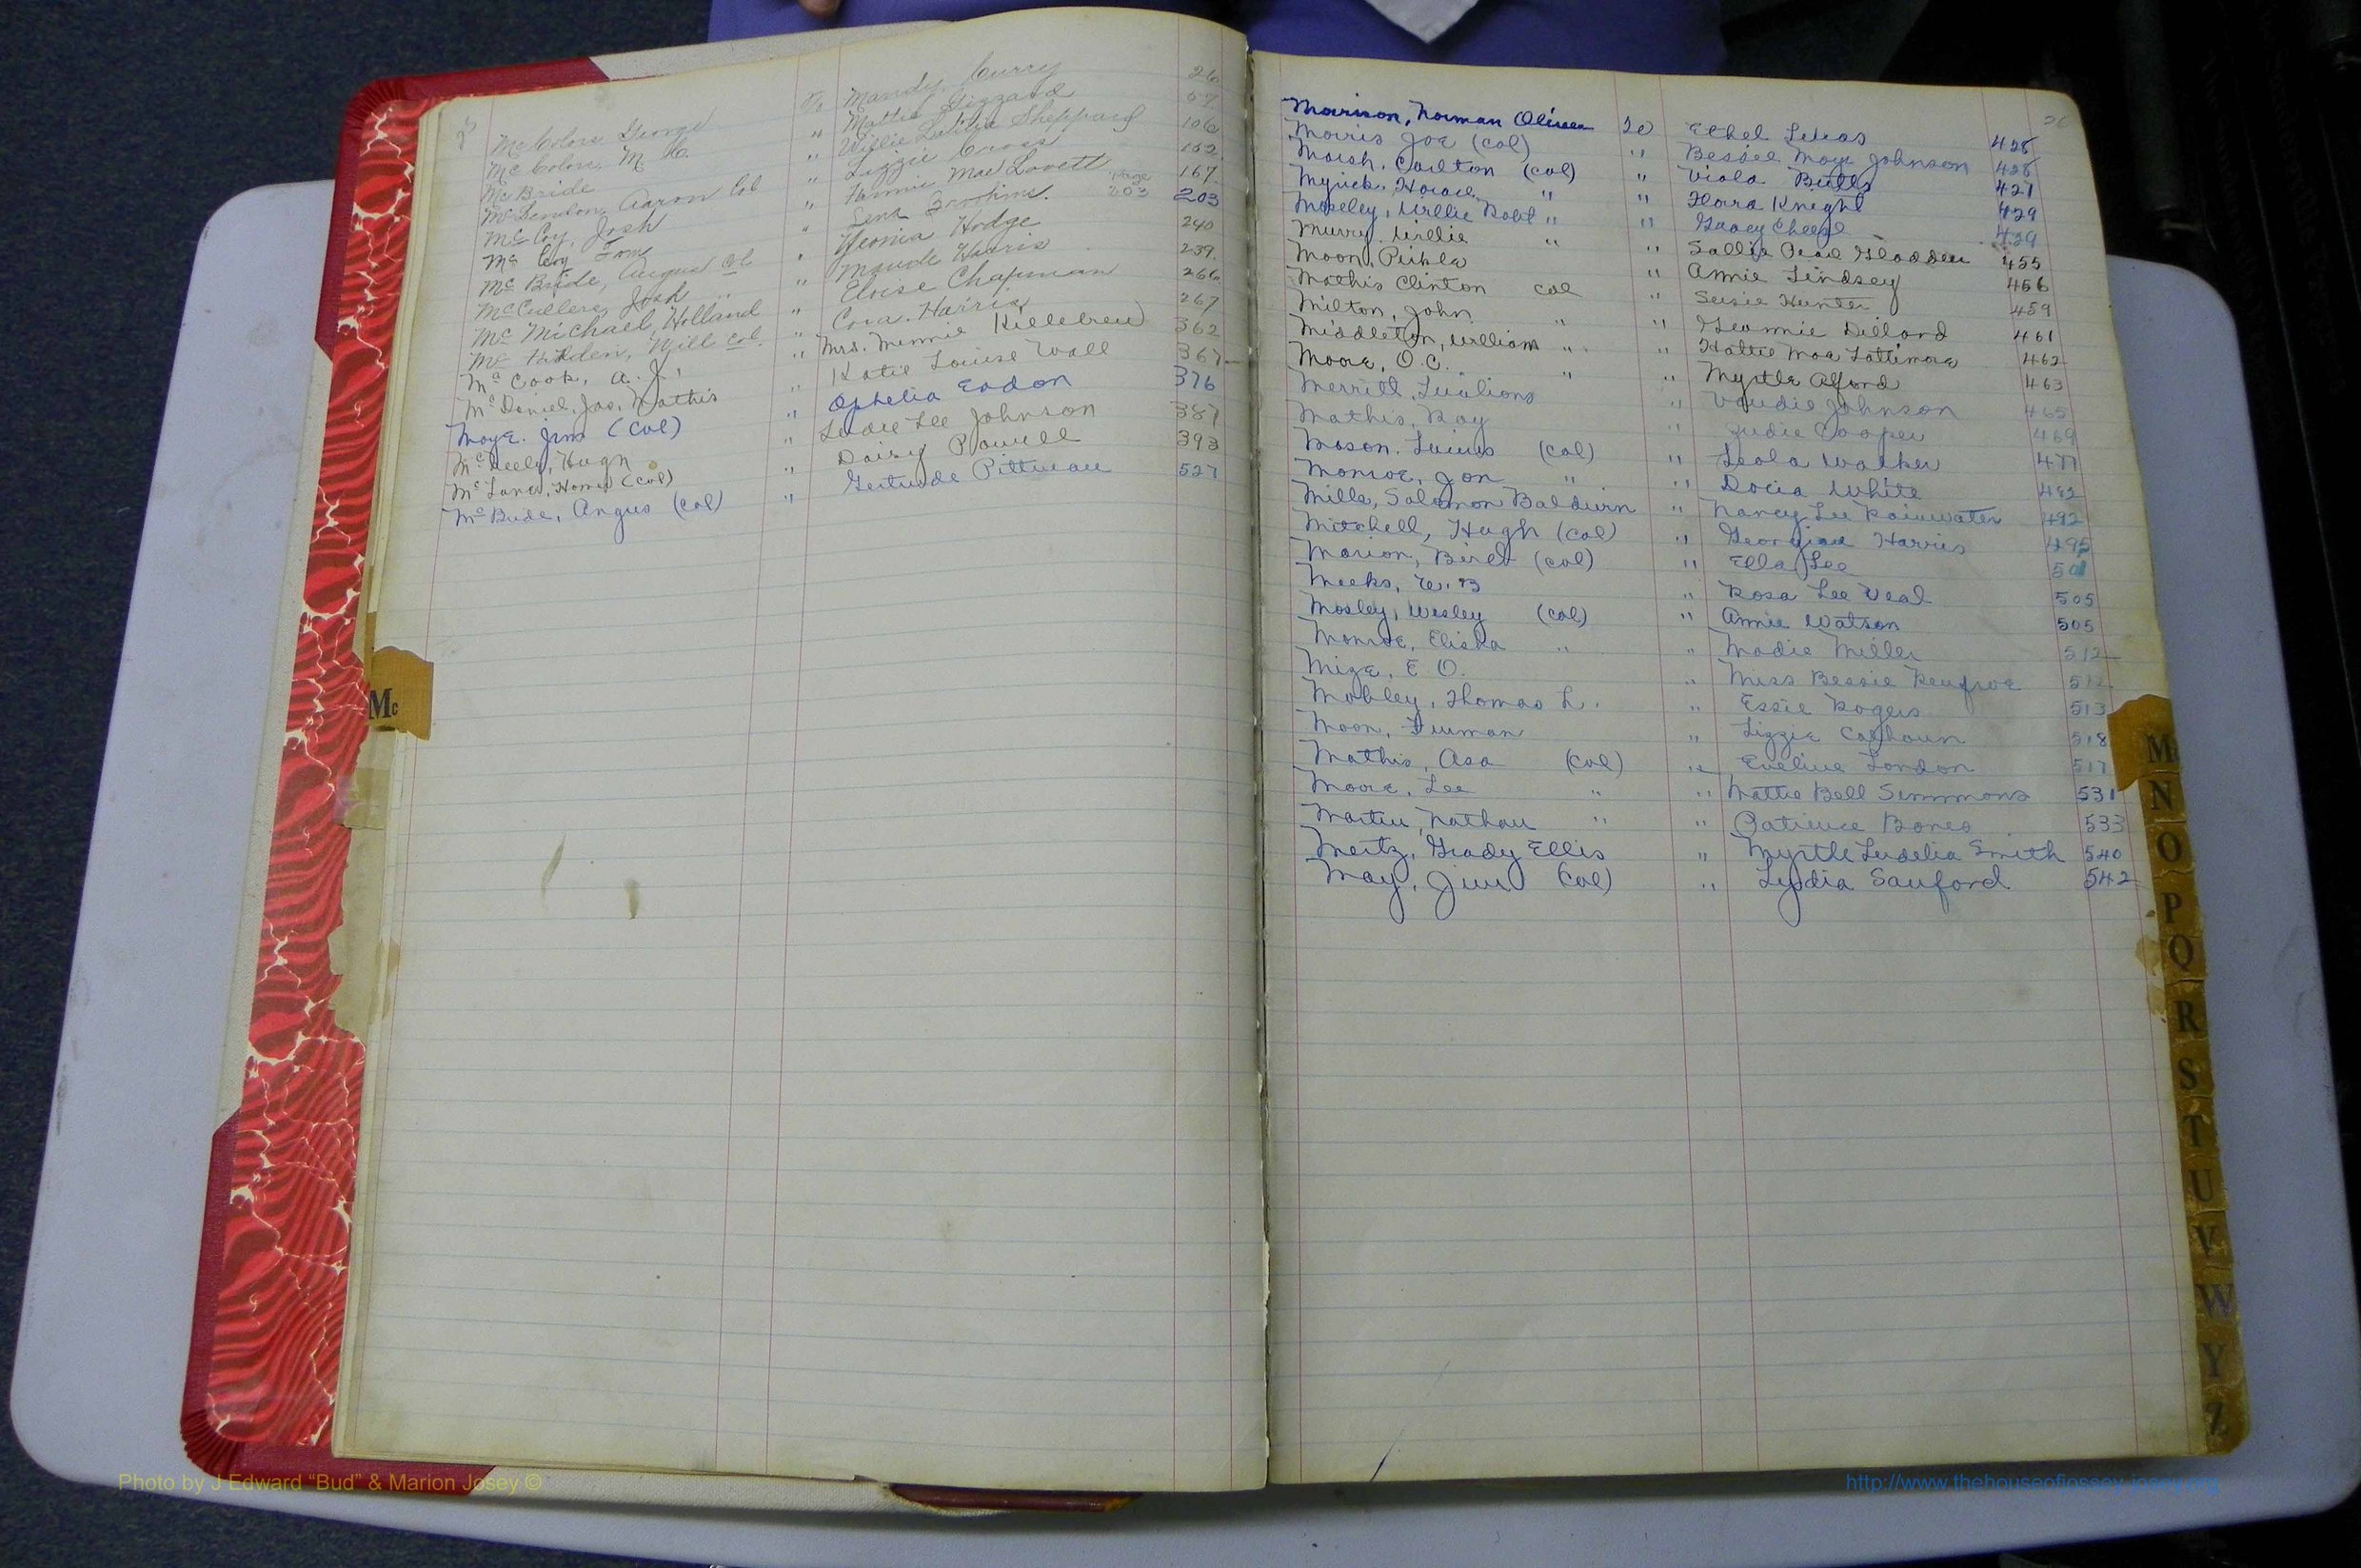 25
McColore George To Mandy Curry 26
McColore, M. C. " Mattie Gizzard 57
McBride " Willie Lutitia Sheppard 106
McLendon, Aaron Col " Lizzie Cross 152
McCoy, Josh " Fannie Mae Lovett 167
McCoy Tom " Lena Page 203 203
McBride, August Col " Weonia Hodge 240
McCullers, Josh " " Maude Harris 239
McMichael, Holland " Eloise Chapman 266
Will Col. " Cora Harris 267
McCook, A. J., " Mrs. Minnie Killebrew 362
McDaniel, Jas. Mathis " Katie Louise Wall 367
Moye. Jim (Col) " Ophelia Eadon 376
McNeely, Hugh " Ludie Lee Johnson 387
McLane, Homer (Col) " Daisy Powell 393
McBride, Angus (Col) " Gertrude Pittman 527
Mc
26
Morrison, Norman Oliver To Ethel Lucas 428
Morris Joe (Col) " Bessie Maye Johnson 428
Marsh, Carlton (Col) " Viola Butts 421
Myrick, Horace " " Flora Knight 429
Moseley, Willie Robt " " Gracy Cheesl 429
Murry, Willie " " Sallie Pearl Gladden 455
Moon, " Annie Lindsey 456
Mathis Clinton Col " Susie Hunter 459
Milton, John " " Geannie Dillard 461
Middleton, William " " Hattie Mae Lattimore 462
Moore, O.C. " " Myrtle Alford 463
Merritt, " Vaudie Johnson 465
Mathis, Roy " Judie Cooper 469
Mason, Lewis (Col) " Leola Walker 477
Monroe, Jon " " Docia White 482
Mills, Salomon Baldwin " Nancy Lee Rainwater 492
Mitchell, Hugh (Col) " Georgian Harris 495
Marion, Bird (Col) " Ella Lee 501
Meeks, W. B " Rosa Lee Veal 505
Mosley, Wesley (Col) " Annie Watson 505
Monroe, Elisha " " Madie Miller 512
Mize, E O. " Miss Bessie Renfroe 512
Mobley, Thomas L. " Essie Rogers 513
Moon, Furman " Lizzie Calhoun 518
Mathis, Asa (Col) " Eveline London 517
Moore, Lee " " Mattie Bell Simmons 531
Martin, Nathan " " Patience Bones 533
Mertz, Grady Ellis " Myrtle Ludelia Smith 540
May, Jim (Col) " Lydia Sanford 542
M
N
O
P
Q
R
S
T
U
V
W
Y
Z
Photo by J Edward “Bud” & Marion Josey ©
http://www.thehouseofjossey-josey.org